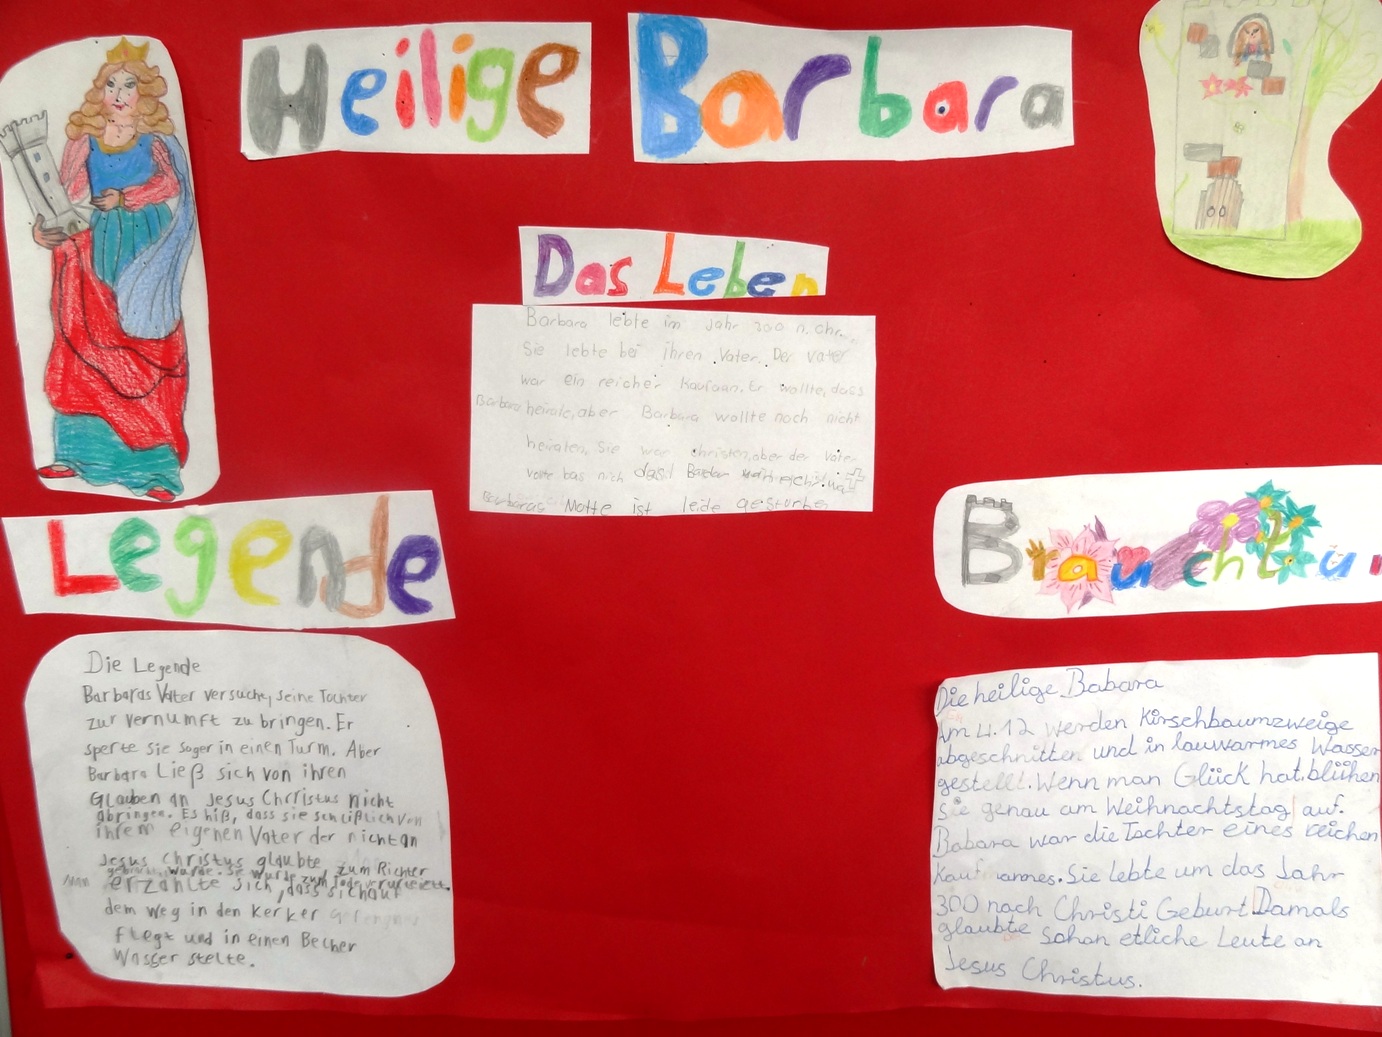 Heilige Barbara
Das Leben
Barbara lebte im Jahr 300 n. Chr.
Sie lebte bei ihren Vater. Der Vater
war ein reicher Kaufaan. Er wollte, dass
Barbara heirate, aber Barbara wollte noch nicht
heiraten. Sie war christen, aber der Vater
das
Barbaras Motte ist leide gestorben
Legende
Die Legende
Barbaras Vater versuchte, seine Tochter
zur vernumft zu bringen. Er
sperte sie sogar in einen Turm. Aber
Barbara Ließ sich von ihren
Glauben an Jesus Christus nicht
abringen. Es hiß, dass sie schlißlich von
ihrem eigenen Vater der nicht an
Jesus Christus glaubte zum Richter
wurde. Sie wurde zum Tode verurteielt.
Man erzählte sich, dass sich auf
dem Weg in den Kerker
und in einen Becher
Wasser stelte.
Brauchtum
Die heilige Babara
Am 4.12 werden Kirschbaumzweige
abgeschnitten und in lauwarmes Wasser
gestellt. Wenn man Glück hat, blühen
sie genau am Weihnachtstag auf.
Babara war die Tochter eines reichen
Kaufmannes. Sie lebte um das Jahr
300 nach Christi Geburt Damals
glaubte schon etliche Leute an
Jesus Christus.